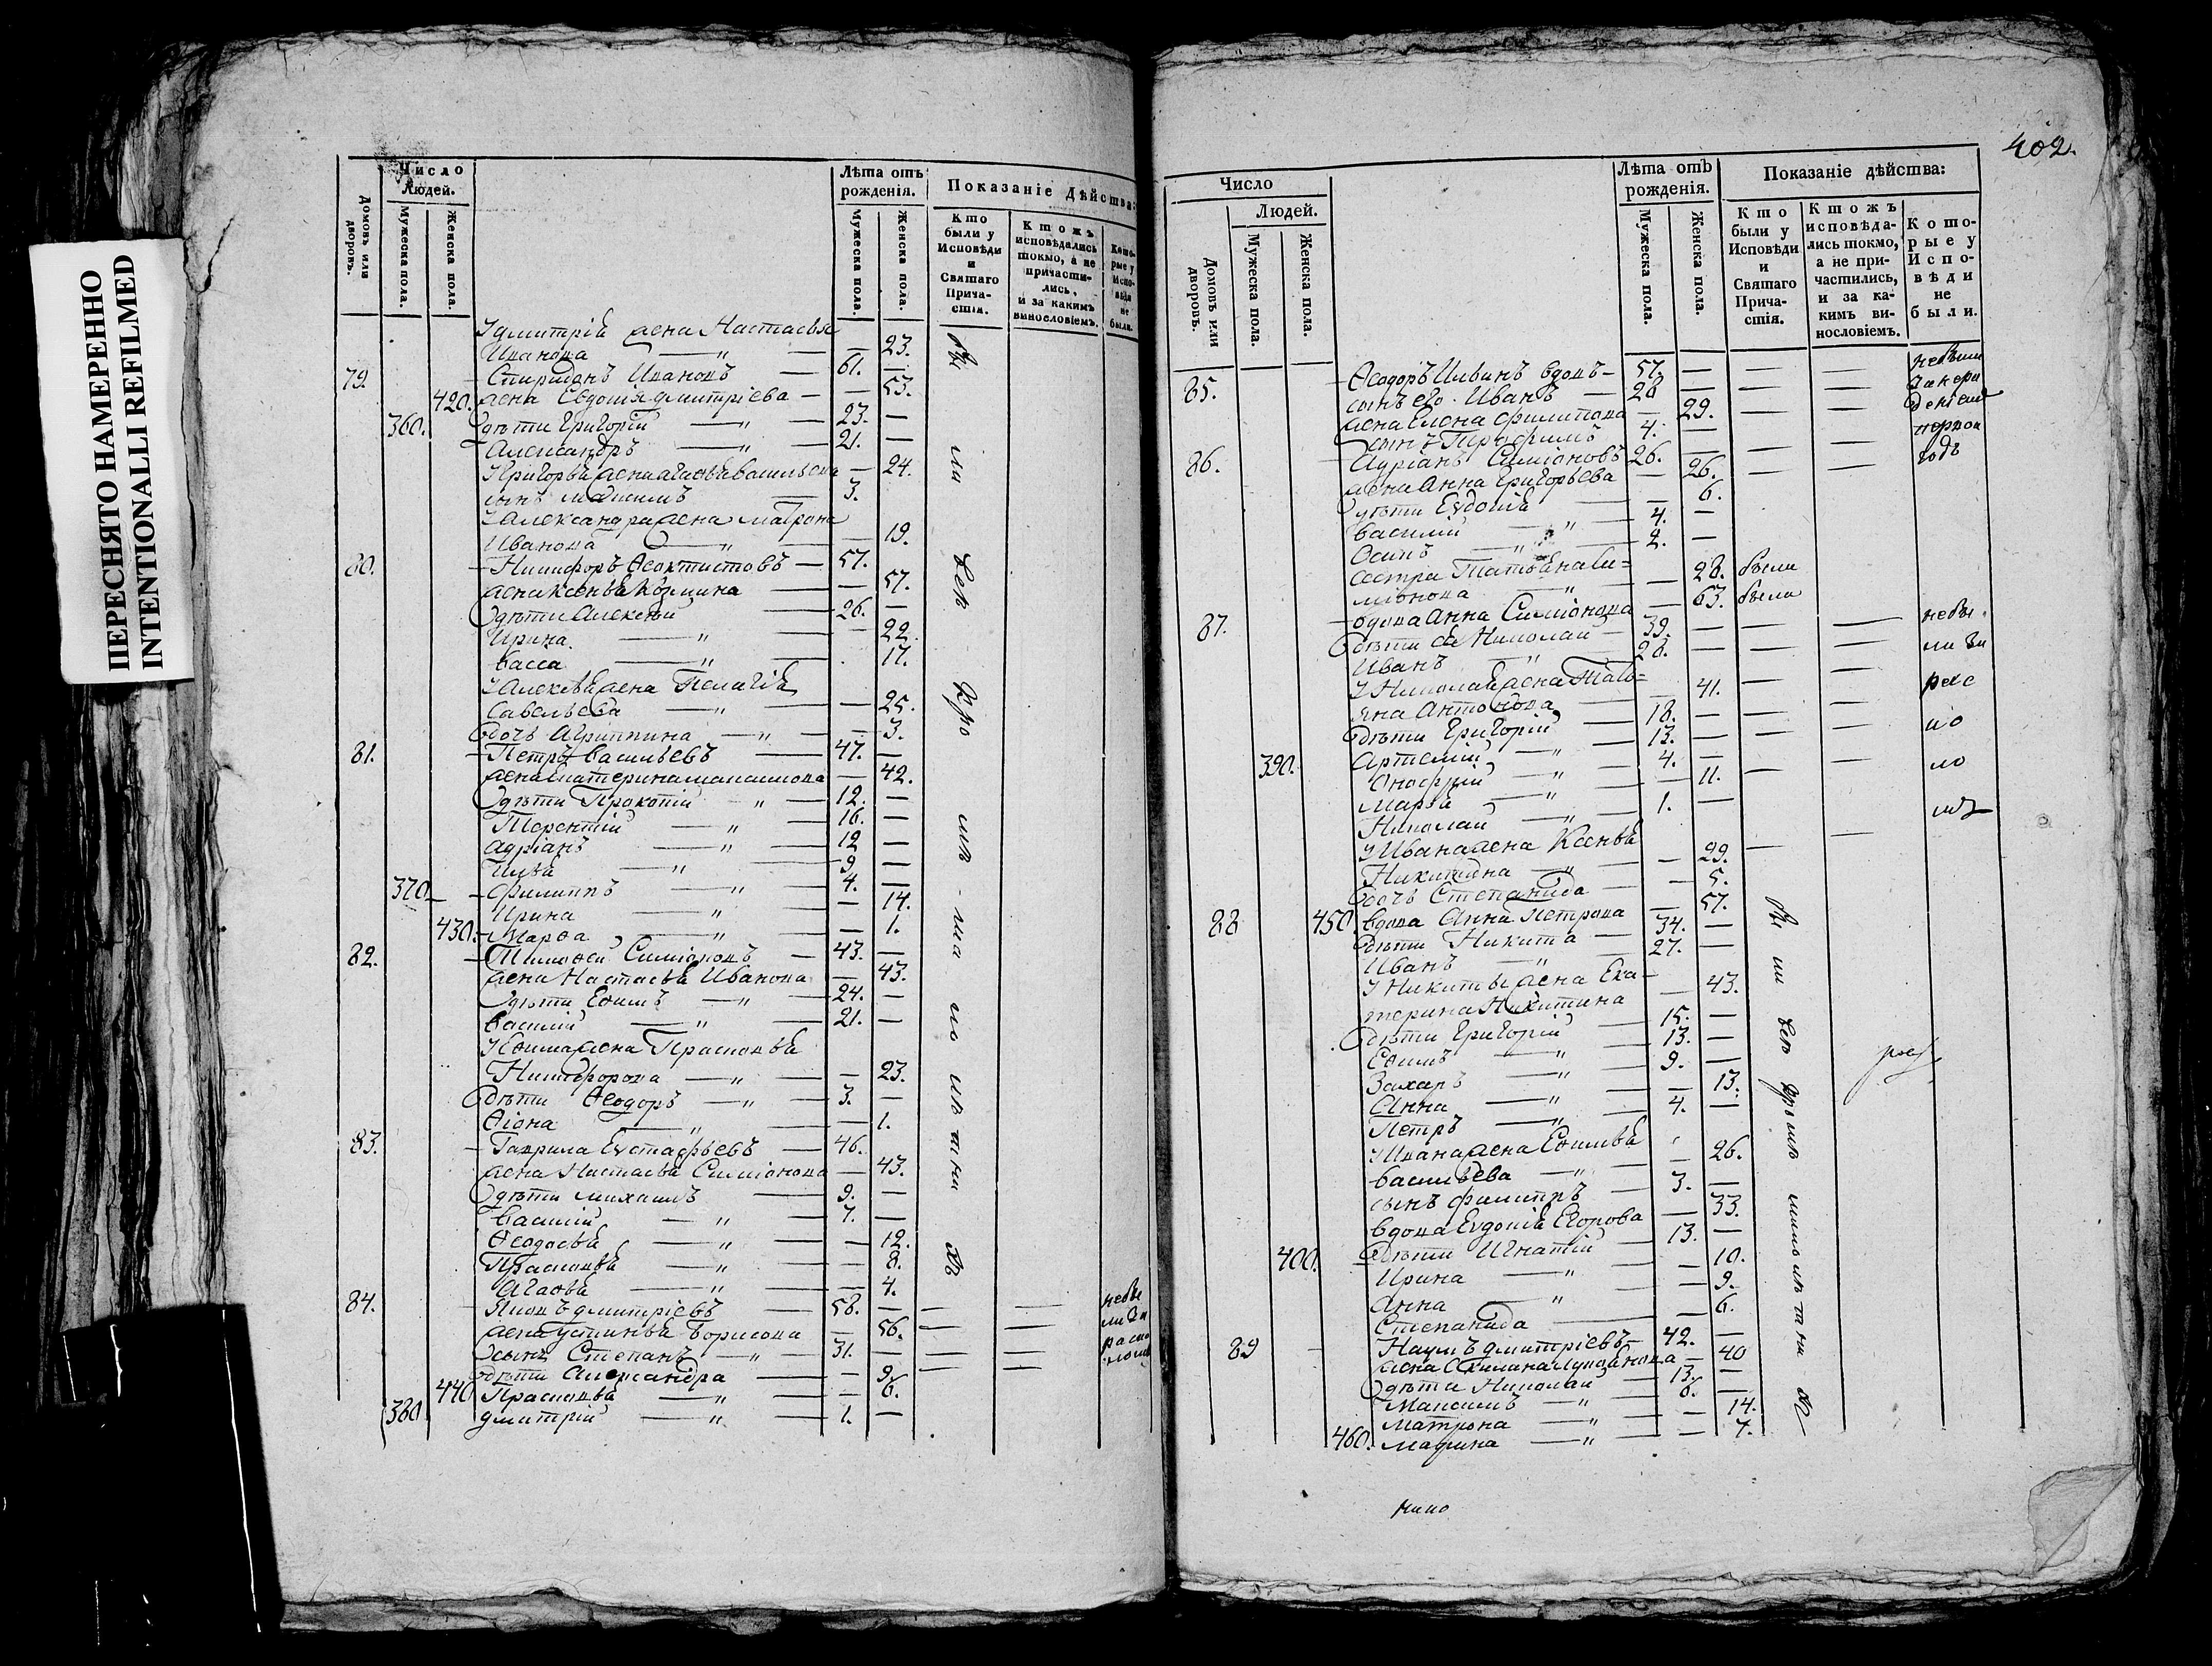 ПЕРЕСНЯТО НАМЕРЕННО
INTENTIONALLI REFILMED
Число Людей.
Домовъ или дворовъ.
Мужеска пола.
Женска пола.
Лѣта отъ рожденія.
Мужеска пола.
Женска пола.
Показаніе дѣйства:
Кто были у Исповѣди и Святаго Прича-стія.
Ктожъ исповѣдались токмо, а не причасти-лись, и за какимъ винословіемъ.
Кото-рые у Испо-вѣди не были.
У дмитрія жена Настасья
Иванова — " — — 23.
79. Спиридонъ Ивановъ — 61. —
420. жена Евдокія дмитріева — — 53.
360. дѣти Григорій — " — 23. —
Александръ — " — 21. —
У Григорья жена Агафья васильева — 24.
сынъ Максимъ — 3.
У Александра жена матрона
Иванова — " — — 19.
80. Никифоръ Ѳеоктистовъ — 57.
жена Ксенья — — 57.
дѣти Алексѣй — 26. —
Ирина — " — — 22.
васса — " — 17.
У Алексѣя жена Пелагія
Савельева — " — — 25.
дочь Агриппина — " — — 3.
81. Петръ васильевъ — 47. —
жена катерина максимова — 42.
дѣти Прокопій — " — 12. —
Терентій — " — 16. —
Адріанъ — " — 12 —
Илья — " — 9 —
370. Филиппъ — " — 4. —
Ирина — " — — 14.
430. Марѳа — " — — 1.
82. Тимоѳей Симіоновъ — 43. —
жена Настасья Иванова — 43.
дѣти Еѳимъ — " — 24. —
василій — " — 21. —
У Еѳима жена Прасковья
Никифорова — " — — 23.
дѣти Ѳеодоръ — " — 3. —
Ѳіона — " — — 1.
83. Гаврила Еvстафьевъ — 46. —
жена Настасья Симіонова — 43.
дѣти михаилъ — 9. —
василій — " — 7. —
Ѳеодосья — " — — 12.
Прасковья — " — — 8.
Агаѳья — " — — 4.
84. Яковъ дмитріевъ — 58. — — —
жена устинья Борисова — 56. — —
сынъ Степанъ — " — 31. — — —
дѣти Александра — — 9.
440. Прасковья — " — — 6.
380. дмитрій — " — 1. —
402.
Число Людей.
Домовъ или дворовъ.
Мужеска пола.
Женска пола.
Лѣта отъ рожденія.
Мужеска пола.
Женска пола.
Показаніе дѣйства:
Кто были у Исповѣди и Святаго Прича-стія.
Ктожъ исповѣда-лись токмо, а не при-частились, и за ка-кимъ ви-нословіемъ.
Кото-рые у Испо-вѣди не были.
85. Ѳеодоръ Ильинъ вдовъ — 57. — — —
сынъ его Иванъ — 28 — — —
жена Елена филипова — 29. — —
сынъ Трофимъ 4. —
86. Адріанъ Симіоновъ 26. — — —
жена Анна Григорьева — 26. — —
дѣти Еvдокія — 6.
василій — " — 4. —
Осипъ — " — 2. —
сестра Татьяна Си=
міонова — 28. была
87. вдова Анна Симіонова — 63. была
дѣти её Николай — 39. — — —
Иванъ — " — 28. — — —
У Николая жена Тать=
яна Антонова — 41. — —
дѣти Григорій — 18. — — —
390. Артемій — " — 13. — — —
Онофрій — " — 4. —
Марья — " — — 11. —
Николай — " — 1. —
У Ивана жена Ксенья
Никитина — " — — 29. —
дочь Степанида — — 5.
88 450. вдова Анна Петрова — 57.
дѣти Никита — 34. —
Иванъ — " — 27. —
У Никиты жена Ека-
терина Никитина — 43.
дѣти Григорій — 15. —
Еѳимъ — " — 13. —
Захаръ — " — 9. —
Анна — " — — 13.
Петръ — " — 4. —
У Ивана жена
васильева — " — — 26.
сынъ — 3. —
вдова Еvдокія Егорова — 33.
400. дѣти Игнатій — 13. —
Ирина — " — — 10.
Анна — " — — 9.
Степанида — — 6.
89 Наумъ дмитріевъ — 42. —
жена — 40
дѣти Николай — 13. —
Максимъ — " — 6. —
матрона — " — — 14.
460. марина — " — — 7.